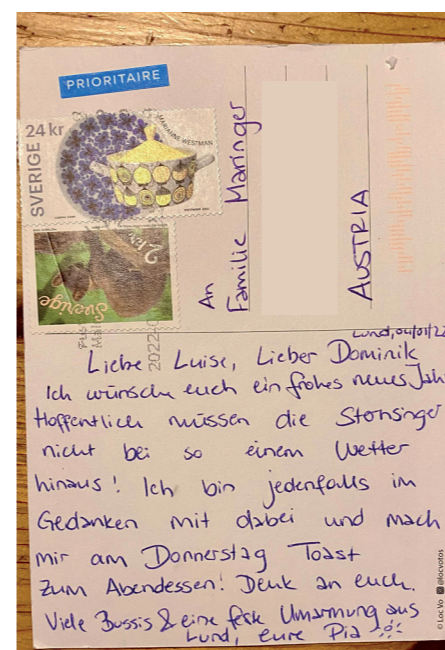 PRIORITAIRE
SVERIGE 24 kr
MARIANNE WESTMAN
2 kr
Sverige
2022-0
An
Familie Maringer
AUSTRIA
Lund, 04/01/22
Liebe Luise, Lieber Dominik
Ich wünsche euch ein frohes neues Jah
Hoffentlich müssen die Sternsinge
nicht bei so einem Wetter
hinaus! Ich bin jedenfalls im
Gedanken mit dabei und mach
mir am Donnerstag Toast
zum Abendessen! Denk an euch.
Viele Bussis & eine feste Umarmung aus
Lund, eure Pia
© Loc Vo @locvotos